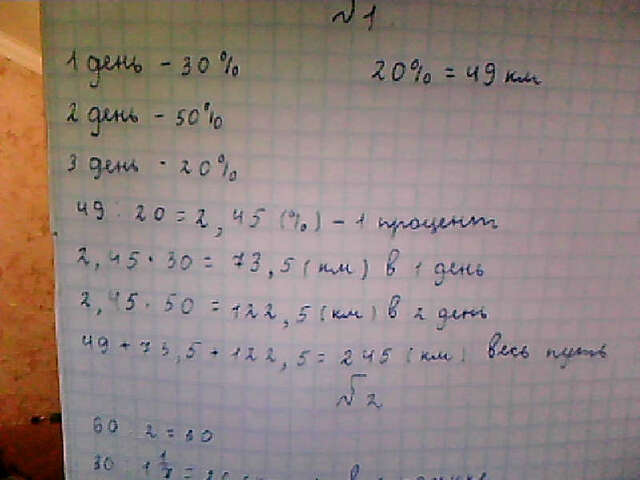 √1
1 день - 30%
20% = 49 км
2 день - 50%
3 день - 20%
49 : 20 = 2,45 (%) - 1 процент
2,45 · 30 = 73,5 (км) в 1 день
2,45 · 50 = 122,5 (км) в 2 день
49 + 73,5 + 122,5 = 245 (км) весь путь
√2
60 : 2 = 30
30 : 1